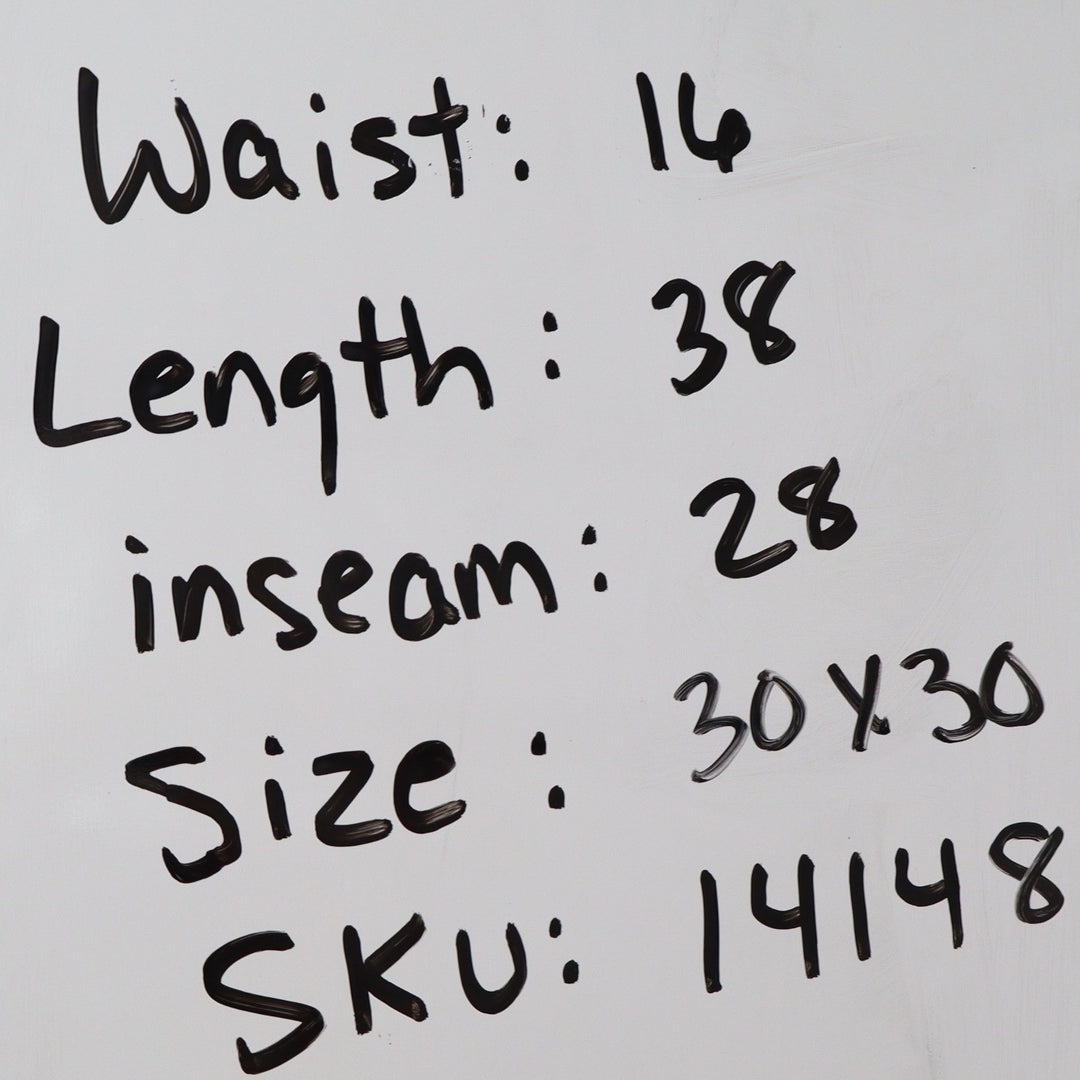 Waist: 16
Length: 38
inseam: 28
Size: 30 X 30
SKU: 14148